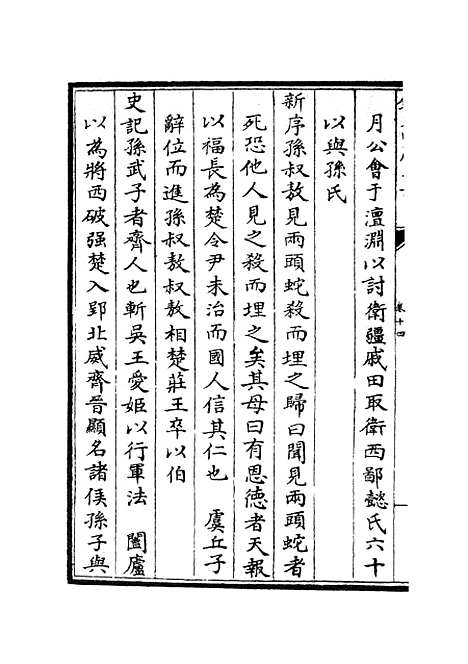 月公會于澶淵以討衛疆戚田取衛西鄙懿氏六十
以與孫氏
新序孫叔敖見兩頭蛇殺而埋之歸曰聞見兩頭蛇者
死恐他人見之殺而埋之矣其母曰有恩德者天報
以福長為楚令尹未治而國人信其仁也　虞丘子
辭位而進孫叔敖叔敖相楚莊王卒以伯
史記孫武子者齊人也斬吳王愛姬以行軍法　闔廬
以為將西破强楚入郢北威齊晉顯名諸侯孫子與
卷十四